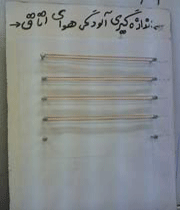 اندازه گیری آلودگی هوای اتاق←